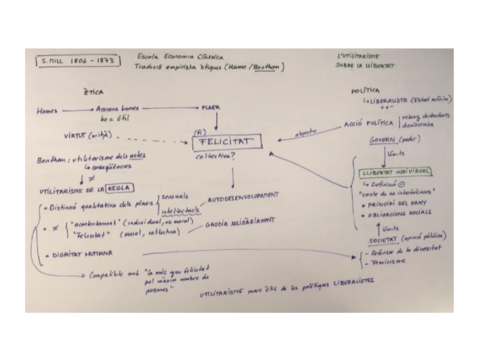 S. MILL 1806 - 1873
Escola Economia Clàssica
Tradició empirista ètiques (Hume / Bentham)
L'UTILITARISME
SOBRE LA LLIBERTAT
ÈTICA
POLÍTICA
Homes → Accions bones → PLAER
bo = útil
LIBERALISTA
VIRTUT (mitjà)
(R)
FELICITAT
col·lectiva?
objectiu
ACCIÓ POLÍTICA
democràcia
GOVERN (poder)
límits
Bentham: utilitarisme dels actes
conseqüències
≠
UTILITARISME DE LA REGLA
LLIBERTAT INDIVIDUAL
Definició
PRINCIPI DEL DANY
OBLIGACIONS SOCIALS
límits
SOCIETAT (opinió pública)
Defensor de la diversitat
Feminisme
Distinció qualitativa dels plaers
sensuals
intel·lectuals
AUTODESENVOLUPAMENT
≠ "acontentament" (individual, no moral)
"felicitat" (moral, col·lectiva)
GAUDIR SOLIDÀRIAMENT
DIGNITAT HUMANA
Compatible amb "la més gran felicitat
pel màxim nombre de
persones"
UTILITARISME marc ètic de les polítiques LIBERALISTES